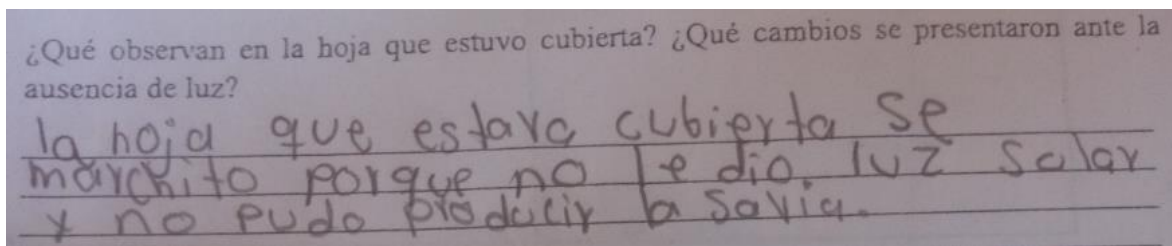 ¿Qué observan en la hoja que estuvo cubierta? ¿Qué cambios se presentaron ante la
ausencia de luz?
la hoja que estava cubierta se
marchito porque no le dio luz solar
y no pudo producir la savia.